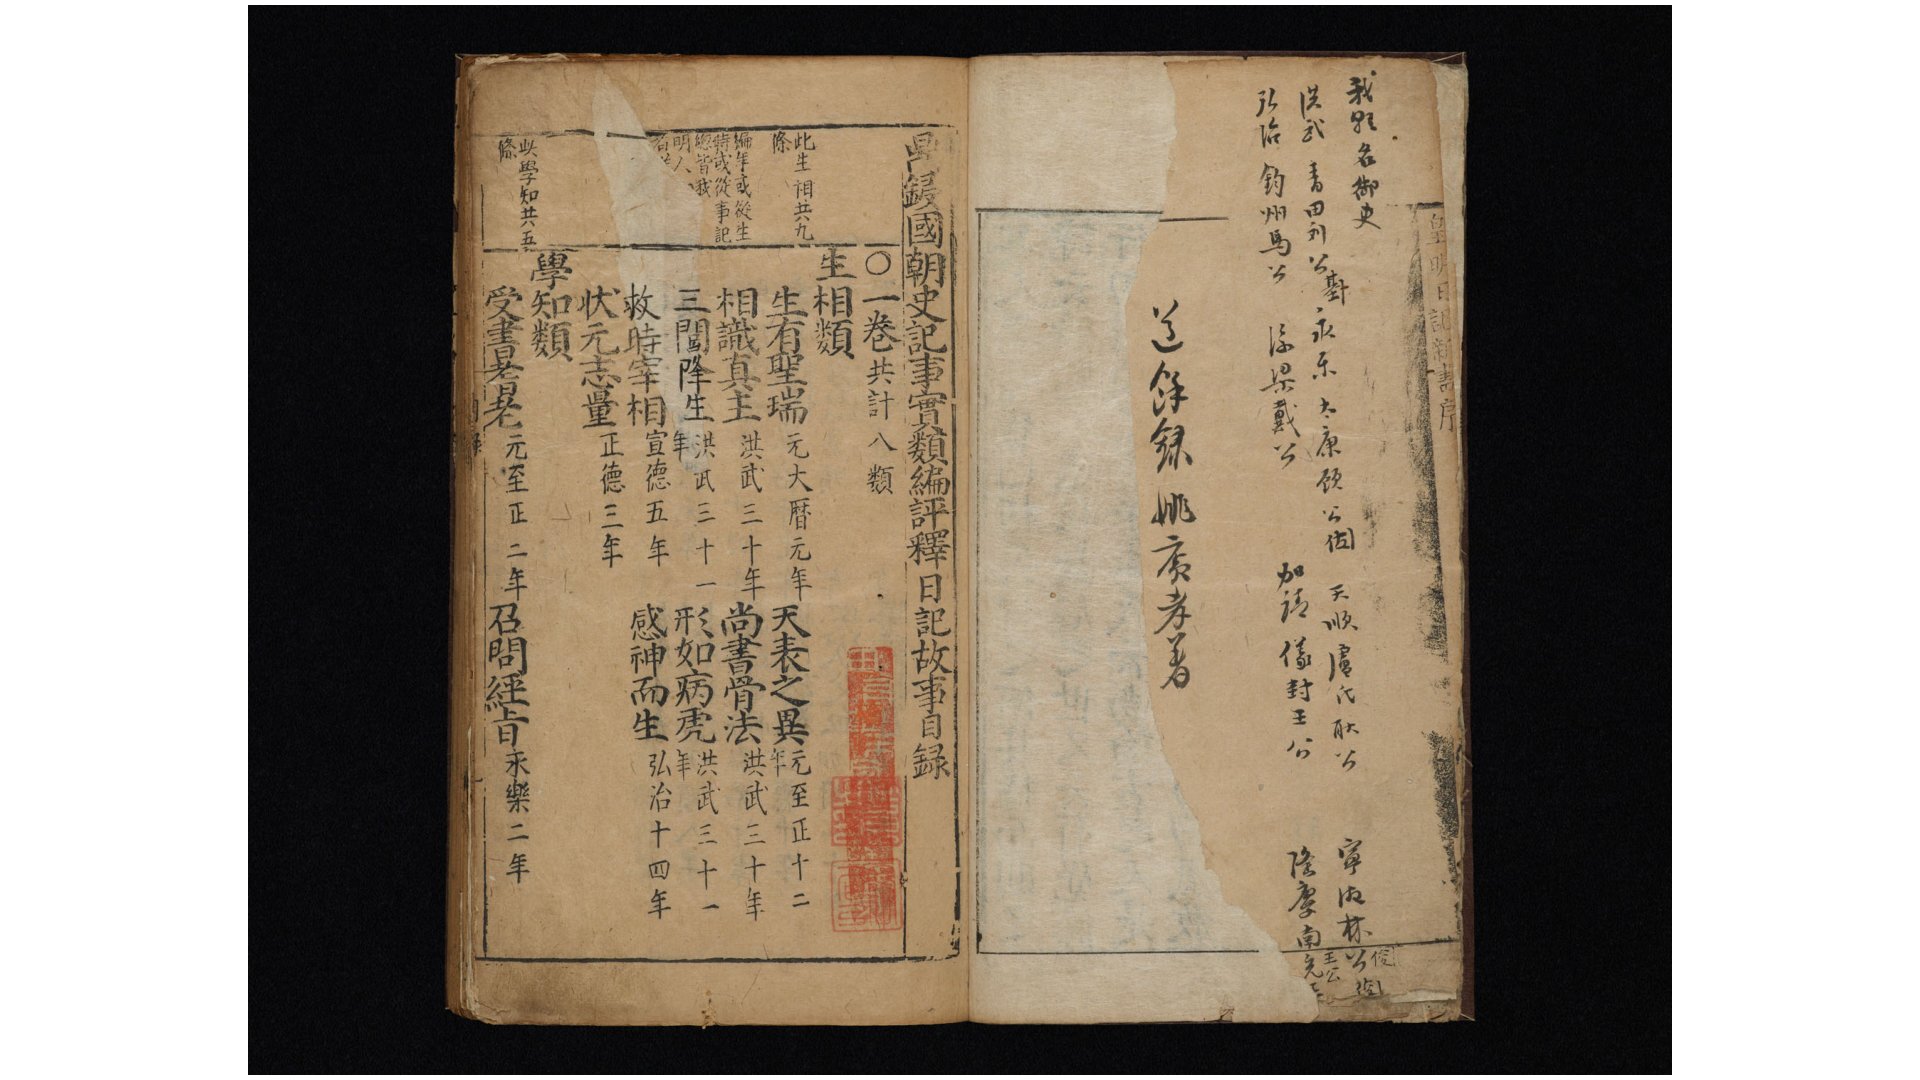 皇明日記故事序
我朝名御史
洪武 青田刘公基 永乐 太康顾公佐 天顺 卢氏耿公 寧 林公俊
弘治 钧州馬公 浚梁戴公 加靖 儀封王公 隆慶 南充王公
道餘録 姚廣孝著
鍥國朝史記事實類編評釋日記故事目録
○一卷 共計八類
此生相共九條
編年或從生
時或從事記
總皆我
明人
生相類
生有聖瑞 元大曆元年 天表之異 元至正十二年
相識真主 洪武三十年 尚書骨法 洪武三十年
三閭降生 洪武三十一年 形如病虎 洪武三十一年
救時宰相 宣德五年 感神而生 弘治十四年
状元志量 正德三年
此學知共五條
學知類
受書異老 元至正二年 召問經旨 永樂二年